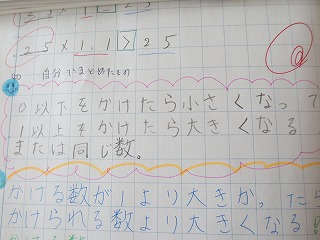 25×1.1>25
自分でまとめたもの
0以下をかけたら小さくなって
1以上をかけたら大きくなる
または同じ数。
かける数が1より大きかったら
かけられる数より大きくなる